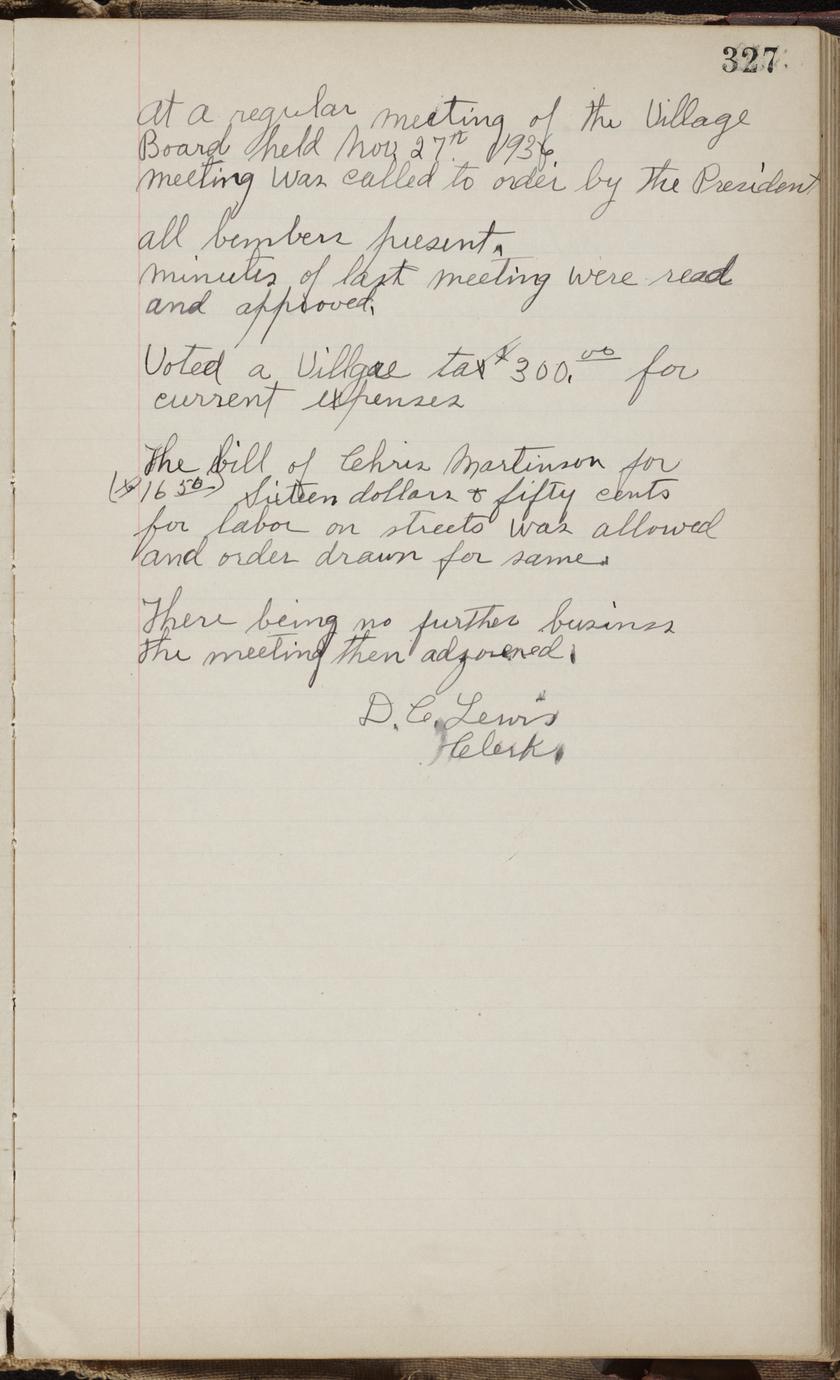 327
at a regular meeting of the Village
Board held Nov 27th 1936
meeting was called to order by the President
all bembers present.
minutes of last meeting were read
and approved.
Voted a Villgae tax $300.00 for
current expenses
The bill of Chris Martinson for
($16 50) Sixteen dollars & fifty cents
for labor on streets was allowed
and order drawn for same.
There being no further business
the meeting then adjourned.
D. C. Lewis
Clerk.